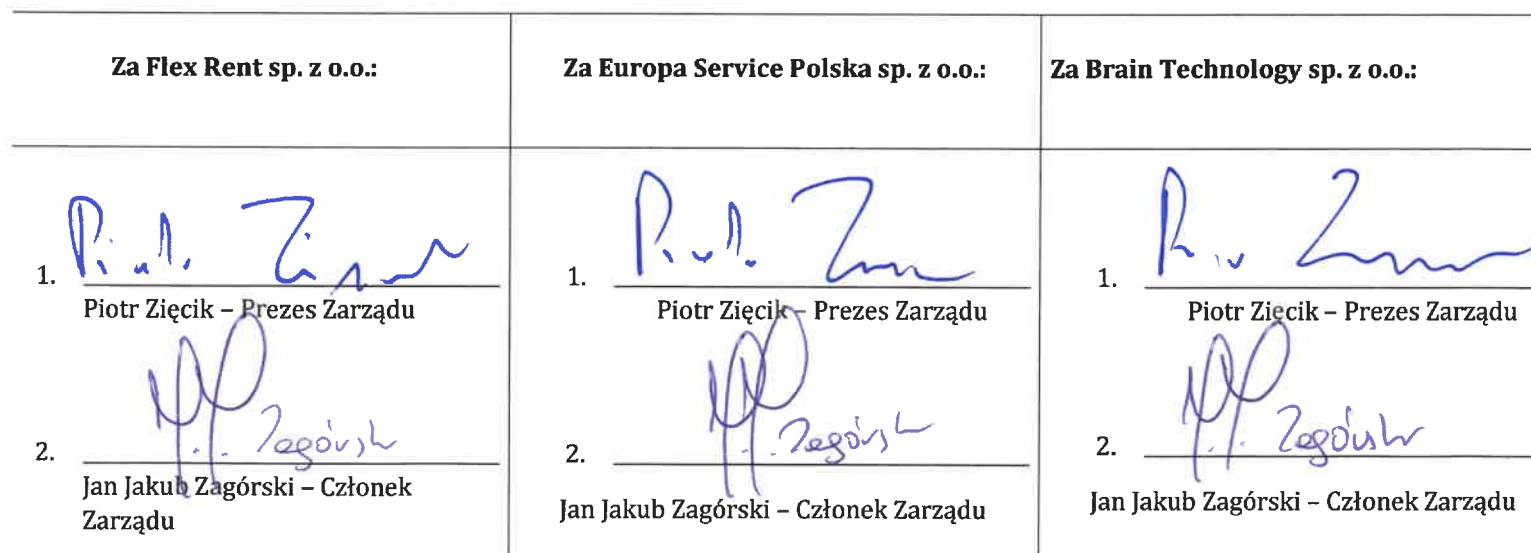 Za Flex Rent sp. z o.o.:
Za Europa Service Polska sp. z o.o.:
Za Brain Technology sp. z o.o.:
1.
Piotr Zięcik – Prezes Zarządu
2. Zagórski
Jan Jakub Zagórski – Członek
Zarządu
1.
Piotr Zięcik – Prezes Zarządu
2. Zagórski
Jan Jakub Zagórski – Członek Zarządu
1.
Piotr Zięcik – Prezes Zarządu
2. Zagórski
Jan Jakub Zagórski – Członek Zarządu